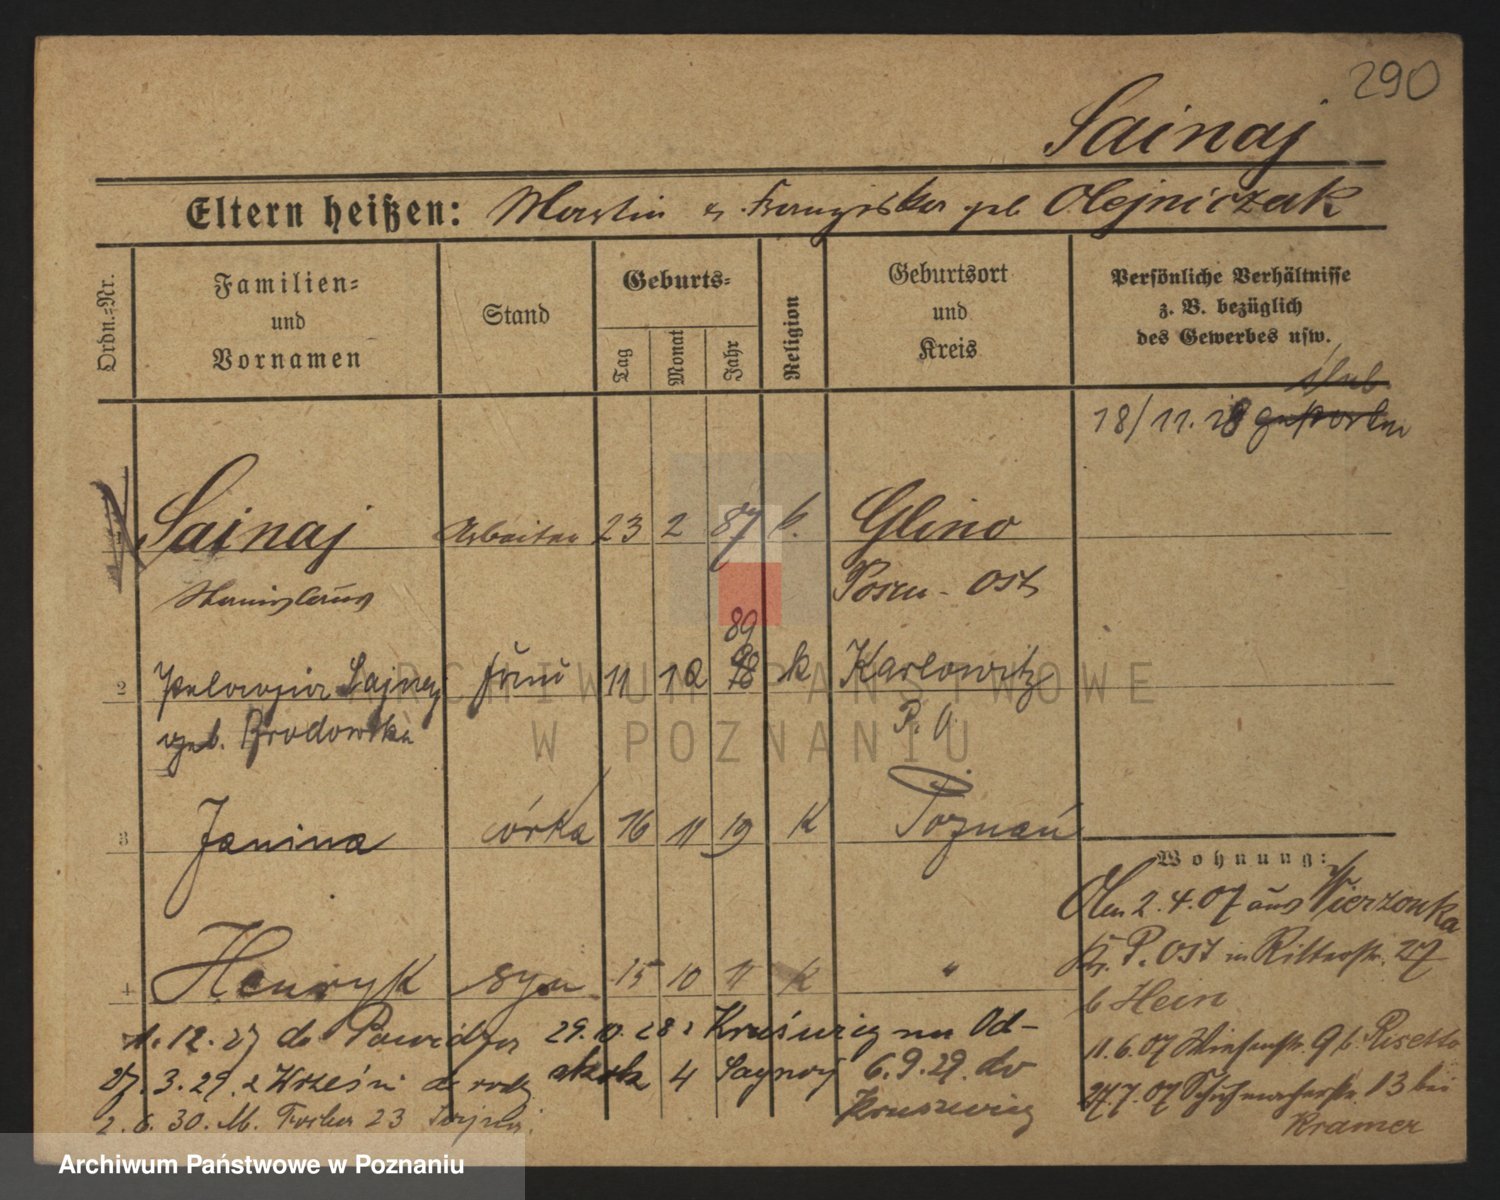 290
Sainaj
Eltern heißen: Martin u. Franziska geb Olejniczak
Ordn.-Nr.
Familien- und Vornamen
Stand
Geburts-
Tag
Monat
Jahr
Religion
Geburtsort und Kreis
Persönliche Verhältnisse
z. B. bezüglich
des Gewerbes usw.
ślub
18/11. 18
1 Sainaj Arbeiter 23 2 87 k. Glino
Stanislaus Posen - Ost
89
2 Pelagia Sajnaj 11 12 k Karlowitz
geb. Brodowska P. O.
3 Janina córka 16 11 19 K Poznań
4 Henryk syn 15 10 11 K "
Wohnung:
2. 4. 07 aus Wierzonka
Kr. P. Ost in Ritterstr. 27
b Hein
11. 6. 07 Wiesenstr. 9 b. Risetto
24. 7. 07 Schuhmacherstr. 13 bei
Kramer
1. 12. 27 do Powidza 29. 10. 28 z Kruświcy na Od-
27. 3. 29. z Wrześni do 4 6. 9. 29. do
Kruszwicy
2. 6. 30. M. Focha 23
ARCHIWUM PAŃSTWOWE
W POZNANIU
Archiwum Państwowe w Poznaniu